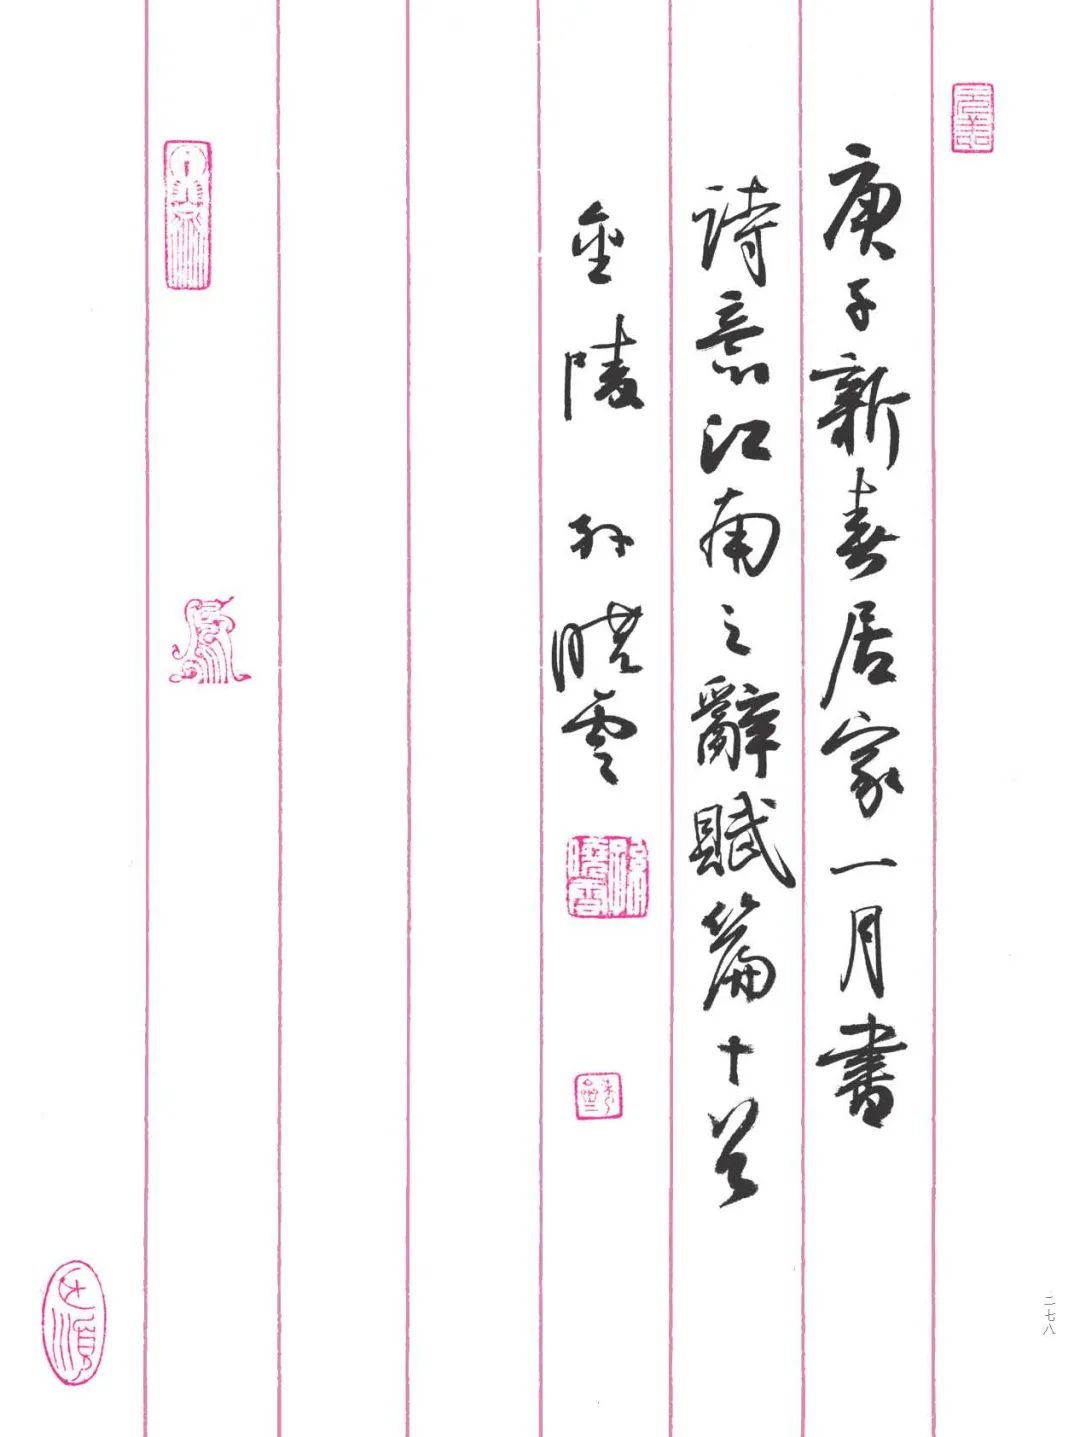 庚子新春居家一月書
詩意江南之辭賦篇十首
金陵 孙曉雲
孫曉雲
二七八